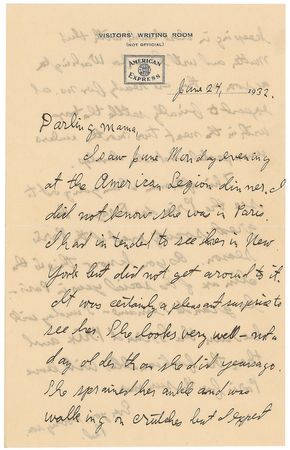 VISITORS' WRITING ROOM
(NOT OFFICIAL)
AMERICAN
EXPRESS
June 24, 1932.
Darling mama,
I saw June Monday evening
at the American Legion dinner. I
did not know she was in Paris.
I had intended to see her in New
York but did not get around to it.
It was certainly a pleasant surprise to
see her. She looks very well - not a
day older than she did years ago.
She sprained her ankle and was
walking on crutches but I expect